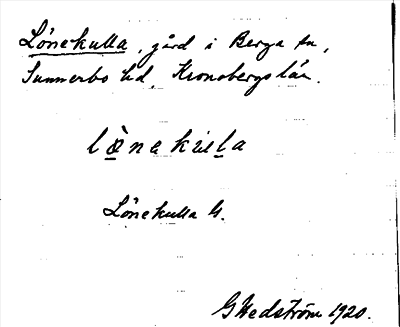 Lönekulla, gård i Berga sn,
Sunnerbo hd, Kronobergs län.
lö̀nekulla
Lönekulla G.
G Hedström 1920.